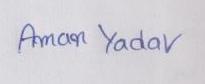 Aman Yadav